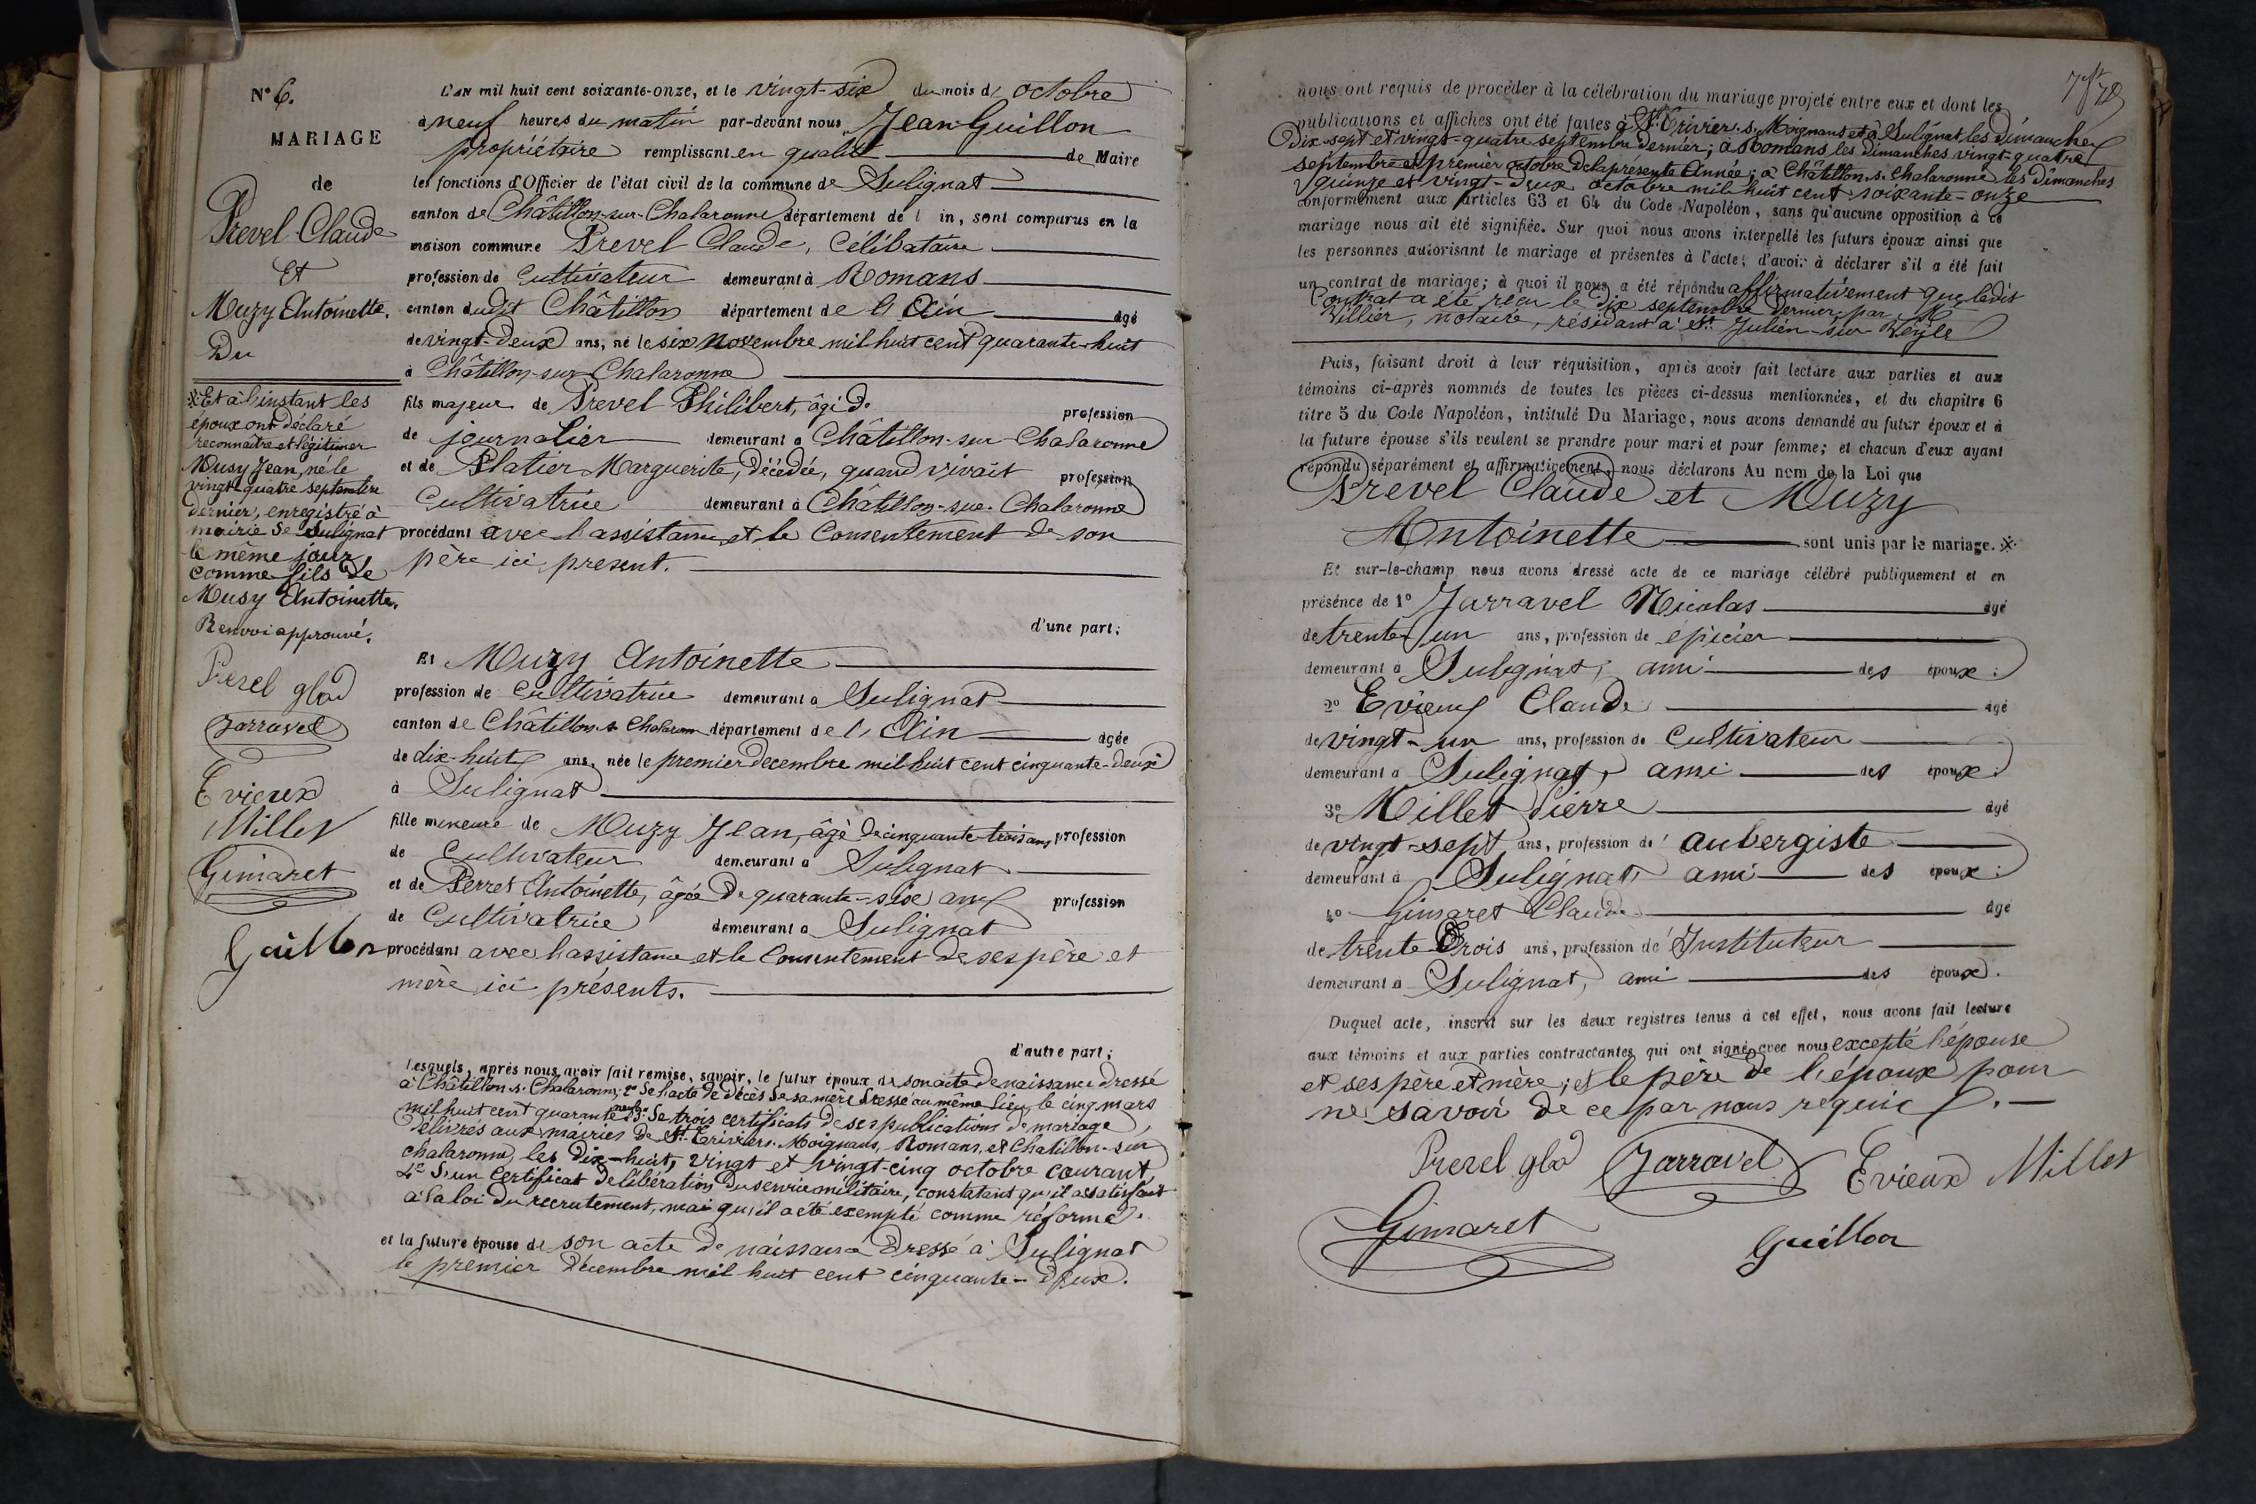 N° 6.
MARIAGE
de
Prevel Claude
et
Muzy Antoinette.
Du
※ Et à l'instant les
époux ont déclaré
reconnaître et légitimer
Musy Jean, né le
vingt-quatre septembre
dernier, enregistré à
mairie de Sulignat
le même jour
comme fils de
Musy Antoinette.
Renvoi approuvé.
Prevel glod
Jarravel
Evieux
Millet
Gimaret
Guillon
L'AN mil huit cent soixante-onze, et le vingt-six du mois d' octobre
à neuf heures du matin par-devant nous Jean Guillon
propriétaire remplissant en qualité de Maire
les fonctions d'Officier de l'état civil de la commune de Sulignat
canton de Châtillon-sur-Chalaronne département de l' in, sont comparus en la
maison commune Prevel Claude, Célibataire
profession de Cultivateur demeurant à Romans
canton dudit Châtillon département de l'Ain âgé
de vingt-deux ans, né le six novembre mil huit cent quarante-huit
à Châtillon-sur-Chalaronne
fils majeur de Prevel Philibert, âgé de profession
de journalier demeurant à Châtillon-sur-Chalaronne
et de Platier Marguerite, décédée, quand vivait profession
Cultivatrice demeurant à Châtillon-sur-Chalaronne
procédant avec l'assistance et le Consentement de son
père ici présent.
d'une part;
Et Muzy Antoinette
profession de Cultivatrice demeurant à Sulignat
canton de Châtillon s. Chalaronn département de l'Ain âgée
de dix-huit ans, née le premier décembre mil huit cent cinquante-deux
à Sulignat
fille mineure de Muzy Jean, âgé de cinquante-trois ans profession
de Cultivateur demeurant à Sulignat
et de Perret Antoinette, âgée de quarante-six ans profession
de Cultivatrice demeurant à Sulignat
procédant avec l'assistance et le Consentement de ses père et
mère ici présents.
d'autre part;
Lesquels, après nous avoir fait remise, savoir, le futur époux de son acte de naissance dressé
à Châtillon-s.-Chalaronne; 2° de l'acte de décès de sa mère dressé au même lieu, le cinq mars
mil huit cent quarante neuf; 3° de trois certificats de ses publications de mariage
délivrés aux mairies de St. Triviers. Moignans, Romans, et Chatillon-sur
chalaronne, les dix-huit, vingt et vingt-cinq octobre courant,
4° d'un Certificat de libération du service militaire, constatant qu'il a satisfait
à la loi du recrutement, mais qu'il a été exempté comme réformé.
et la future épouse de son acte de naissance dressé à Sulignat
le premier décembre mil huit cent cinquante-deux.
nous ont requis de procéder à la célébration du mariage projeté entre eux et dont les
publications et affiches ont été faites à St. Trivier. s. Moignans et à Sulignat les dimanches
Dix-sept et vingt-quatre septembre dernier; à Romans les dimanches vingt-quatre
septembre et premier octobre de la présente Année; à Châtillon. s. Chalaronne les dimanches
quinze et vingt-deux octobre mil huit cent soixante-onze
conformément aux articles 63 et 64 du Code Napoléon, sans qu'aucune opposition à ce
mariage nous ait été signifiée. Sur quoi nous avons interpellé les futurs époux ainsi que
les personnes autorisant le mariage et présentes à l'acte, d'avoir à déclarer s'il a été fait
un contrat de mariage; à quoi il nous a été répondu affirmativement que ledit
Contrat a été reçu le dix septembre dernier par Me
Villier, notaire, résidant à St. Julien-sur-Veyle
Puis, faisant droit à leur réquisition, après avoir fait lecture aux parties et aux
témoins ci-après nommés de toutes les pièces ci-dessus mentionnées, et du chapitre 6
titre 5 du Code Napoléon, intitulé Du Mariage, nous avons demandé au futur époux et à
la future épouse s'ils veulent se prendre pour mari et pour femme; et chacun d'eux ayant
répondu séparément et affirmativement, nous déclarons Au nom de la Loi que
Prevel Claude et Muzy
Antoinette sont unis par le mariage. ※
Et sur-le-champ nous avons dressé acte de ce mariage célébré publiquement et en
présence de 1° Jarravel Nicolas âgé
de trente-un ans, profession de épicier
demeurant à Sulignat, ami des époux;
2° Evieux Claude âgé
de vingt-un ans, profession de Cultivateur
demeurant à Sulignat, ami des époux;
3° Millet Pierre âgé
de vingt-sept ans, profession de aubergiste
demeurant à Sulignat, ami des époux;
4° Gimaret Claude âgé
de trente trois ans, profession de Instituteur
demeurant à Sulignat, ami des époux.
Duquel acte, inscrit sur les deux registres tenus à cet effet, nous avons fait lecture
aux témoins et aux parties contractantes qui ont signé avec nous excepté l'épouse
et ses père et mère; et le père de l'époux pour
ne savoir de ce par nous requis.
Prevel glod Jarravel Evieux Millet
Gimaret Guillon